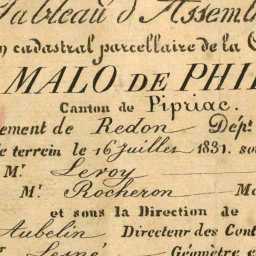 Tableau d'Assembl
n cadastral parcellaire de la C
MALO DE PHI
Canton de Pipriac.
ement de Redon Dépt
e terrein le 16 Juillet 1831. so
Mr. Leroy
Mr. Rocheron M
et sous la Direction de
Aubelin Directeur des Cont
r Lesné Géomètre e